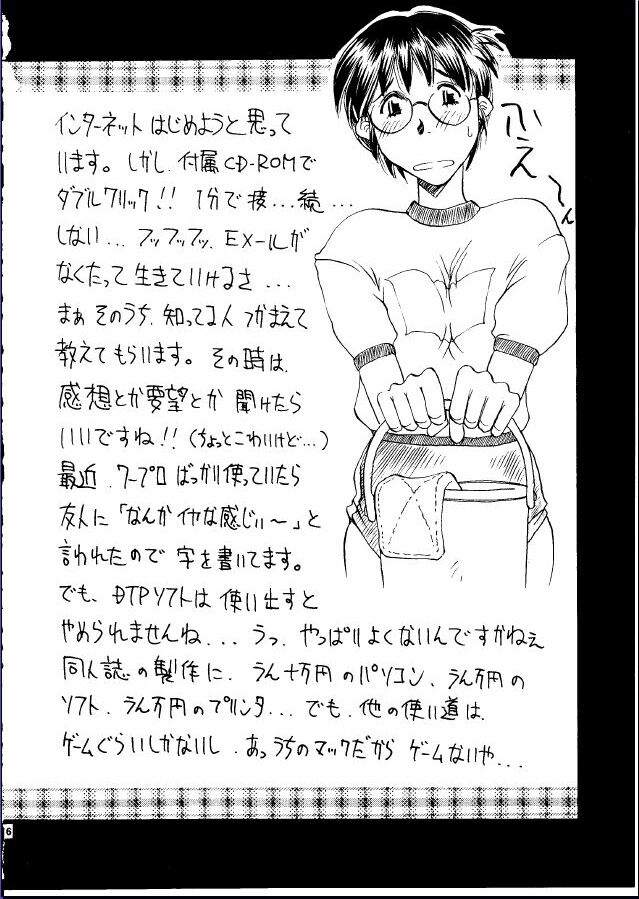 インターネットはじめようと思って
います。しかし、付属CD-ROMで
ダブルクリック!! 1分で接...続...
しない... フッフッフッ、EX-ルが
なくたって生きていけるさ...
まぁそのうち、知ってる人つかまえて
教えてもらいます。その時は、
感想とか要望とか聞けたら
いいですね!!(ちょっとこわいけど...)
最近、ワープロばっかり使っていたら
友人に「なんかイヤな感じぃ〜」と
言われたので字を書いてます。
でも、DTPソフトは使い出すと
やめられませんね... うっ、やっぱりよくないんですかねぇ
同人誌の製作に、うん十万円のパソコン、うん万円の
ソフト、うん万円のプリンタ... でも、他の使い道は、
ゲームぐらいしかないし、あっうちのマックだからゲームないや...
ふえ〜ん
6